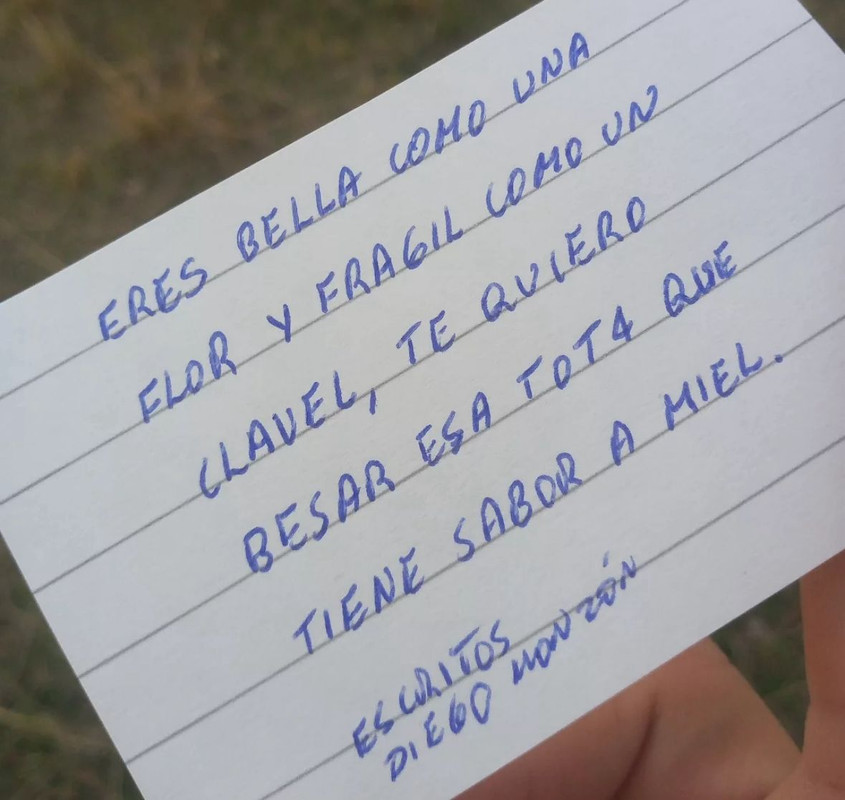 ERES BELLA COMO UNA
FLOR Y FRAGIL COMO UN
CLAVEL, TE QUIERO
BESAR ESA TOT4 QUE
TIENE SABOR A MIEL.
ESCRITOS
DIEGO MONZÓN